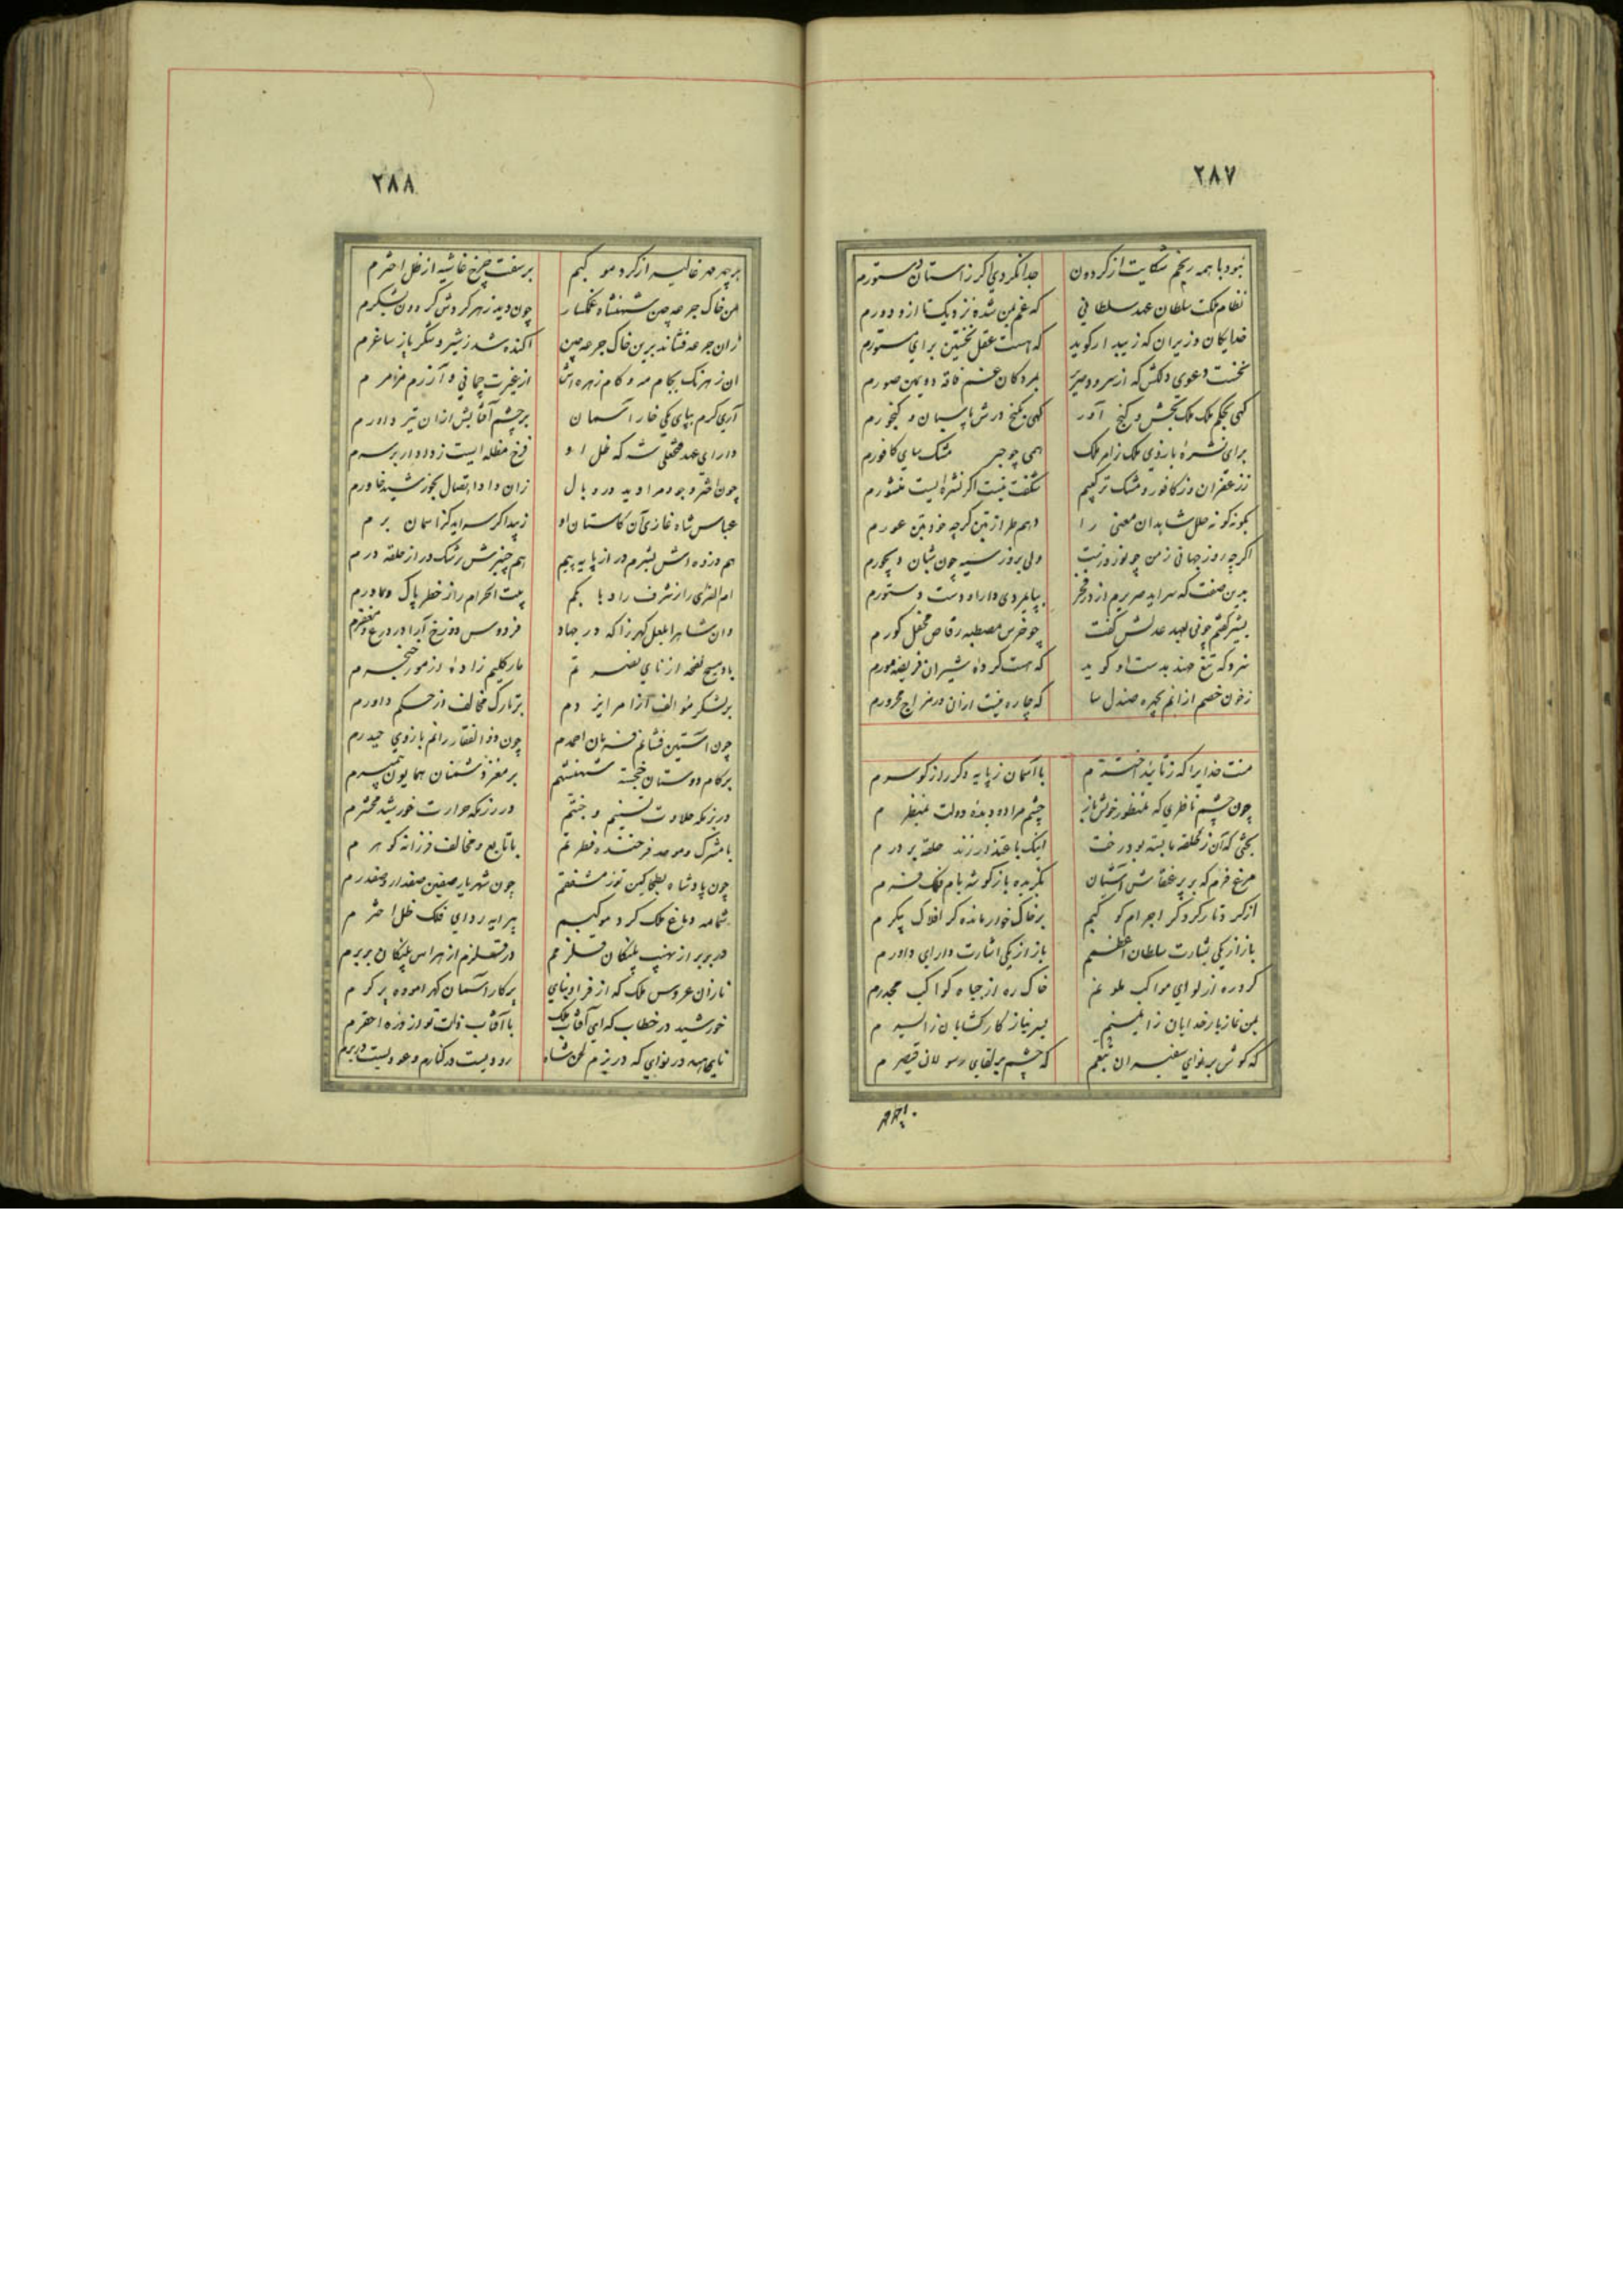 ٢٨٧
نبود با همه رنجم شکایت از کردون جدا نکردی اکر ز استان دستورم
نظام ملک سلطان عهد سلطانی که غم بمن شده نزدیک تا ازو دورم
خدایکان وزیران که زیبد ار کوید که هست عقل نخستین برای دستورم
نخست دعوی دلکش که از سرود صریر بمردکان غم فاقه دویمین صورم
کهی بحکم ملک ملک بخش و کنج آور کهی بکنج درش پاسبان و کنجورم
برای نشرهٔ بازوی ملک زامر ملک همی چو حبر مشک سای کافورم
ز زعفران وز کافور و مشک ترکیبم شکفت نیست اکر نشرهٔ ایست منشورم
بکونه کونه حلل شاهدان معنی را دهم طراز تن کرچه خود بتن عورم
اکرچه روز جهانی ز من چو نوروزیست ولی بروز سیه چون شبان دیجورم
بدین صفت که سراید صریرم از در فخر بپایمردی دارا و دست دستورم
بشیر کفتم چونی بعهد عدلش کفت چو خرس مصطبه رقاص محفل کورم
سزد که تیغ جهند بدست او کوید که هست کردهٔ شیران فریضه مورم
ز خون خصم از انم بچهره صندل سا که چاره نیست ازان در مزاج محرورم
منت خدایرا که ز تائید اخترم با آسمان ز پایه دکر راز کوسرم
چون چشم ناظری که بمنظور خویش باز چشم مراد و دیدهٔ دولت بمنظرم
بختی که آن ز حلقه ما بسته بود رخت اینک باعتذار زند حلقه بر درم
مرغ فرم که بر پر عنقاش آشیان بکزیده باز کوشه بام فلک فرم
از کر و تار کرد کر اجرام کو کبم بر خاک خوار مانده کر افلاک پیکرم
باز از یکی بشارت سلطان اعظمم باز از یکی اشارت دارای داورم
کرد ره از لوای مواکب ملوثم خاک ره از جباه کواکب مجدرم
بمن نماز بار خدایان ز ایمنم یسر نیاز کار کشایان ز ایسرم
که کوش بر نوای سفیران تبعم که چشم بر لقای رسولان قیصرم
بر چهر
٢٨٨
بر چهر مهر غالیه از کرد موکبم بر سفت چرخ غاشیه از ظل اخترم
من خاک جرعه چین شهنشاه غمکسار چون دید زهر کردش کردون بشکرم
زان جرعه فشاند برین خاک جرعه چین اکنده شد ز شیر و شکر باز ساغرم
ان زهرنک بکام مه و کام زهره اش از غیرت چمانی و آزرم مزمرم
آری کرم بپای یکی خار آسمان بر چشم آفتابش ازان تیر داورم
دارای عهد فتحعلی شه که ظل او فرخ مظله ایست ز دادار بر سرم
چون اختر وجود مرا دید در وبال زان داد اتصال بخورشید خاورم
عباس شاه غازی آن کاستان او زیبد اکر سراید کز اسمان برم
هم در زده اش بشرم در از پایه پیم هم چنبرش رشک در از حلقه درم
ام القری را ز شرف راد بابکم بیت الحرام را ز خطر پاک مادرم
وان شاهرا بلعل کهرزا که در جهاد فردوس دوزخ آیرا در درع و مغفرم
باد مسیح نفحه از نای نصرتم مار کلیم زادهٔ از مور خنجرم
بر لشکر موالف آزامر ایزدم بر تارک مخالف از حکم داورم
چون آستین فشاند فرمان احمدم چون ذوالفقار راند بازوی حیدرم
بر کام دوستان خجسته شهنشهم بر مغز دشمنان همایون پیمبرم
در بزمکه حلاوت تسنیم و جنتم در رزمکه حرارت خورشید محشرم
با مشرک و موحد فرخنده فطرتم با تابع و مخالف فرزانه کوهرم
چون پادشاه بطحا کین توز مشفقم چون شهریار صفین صفدار و صفدرم
شمامه دماغ ملک کرد موکبم پیرایه ردای فلک ظل اخترم
در بربر از نهیب پلنکان قلزمم در قلزم از هراس پلنکان بربرم
نازان عروس ملک که از فر او بنای پرکار آسمان کهر اموده پرکرم
خورشید در خطاب که ای آفتاب ملک با آفتاب ذات تو از ذره احقرم
ناهید در نوای که در بزم لحن شاه رودیست در کنارم و عودیست در برم